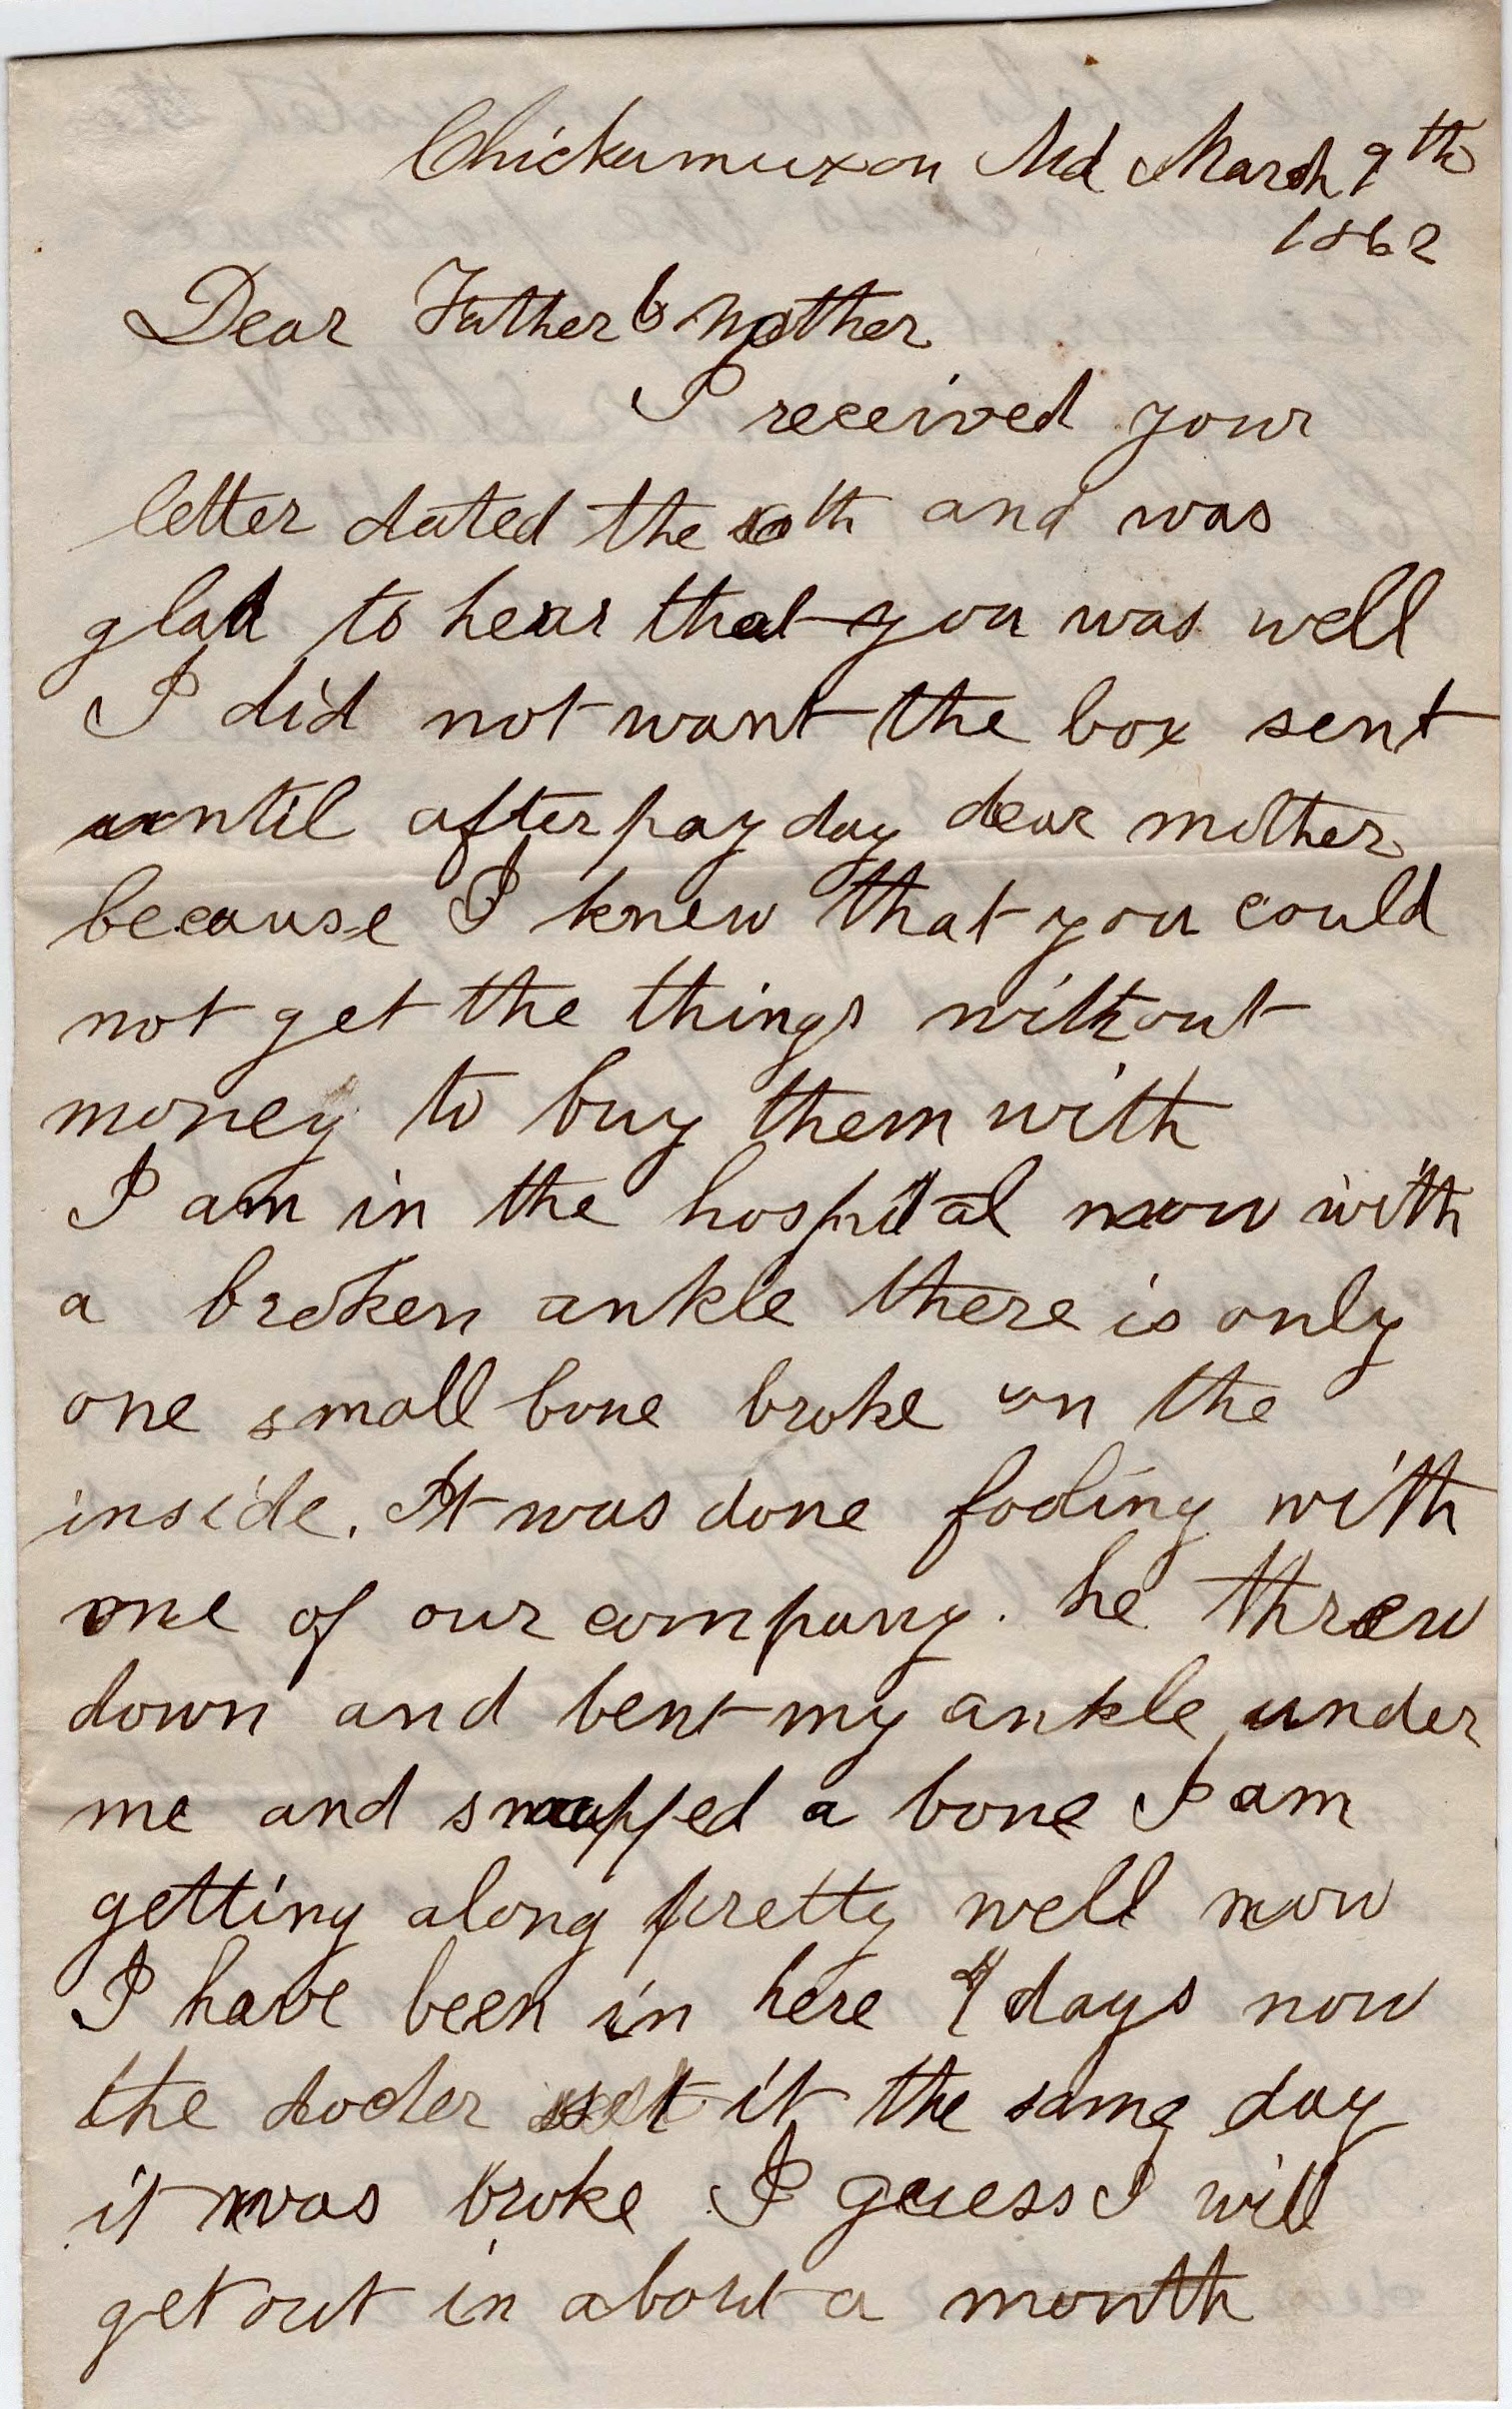 Chickamuxon Md March 9th
1862
Dear Father & Mother
I received your
letter dated the th and was
glad to hear that you was well
I did not want the box sent
until after pay day dear mother
because I knew that you could
not get the things without
money to buy them with
I am in the hospital now with
a broken ankle there is only
one small bone broke on the
inside. It was done fooling with
one of our company. he threw
down and bent my ankle under
me and snapped a bone I am
getting along pretty well now
I have been in here days now
the docter set it the same day
it was broke I guess I will
get out in about a month